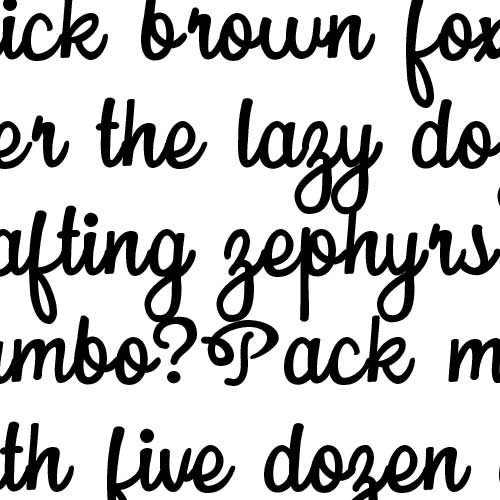 ick brown fox
er the lazy do
afting zephyrs
umbo?Pack m
th five dozen